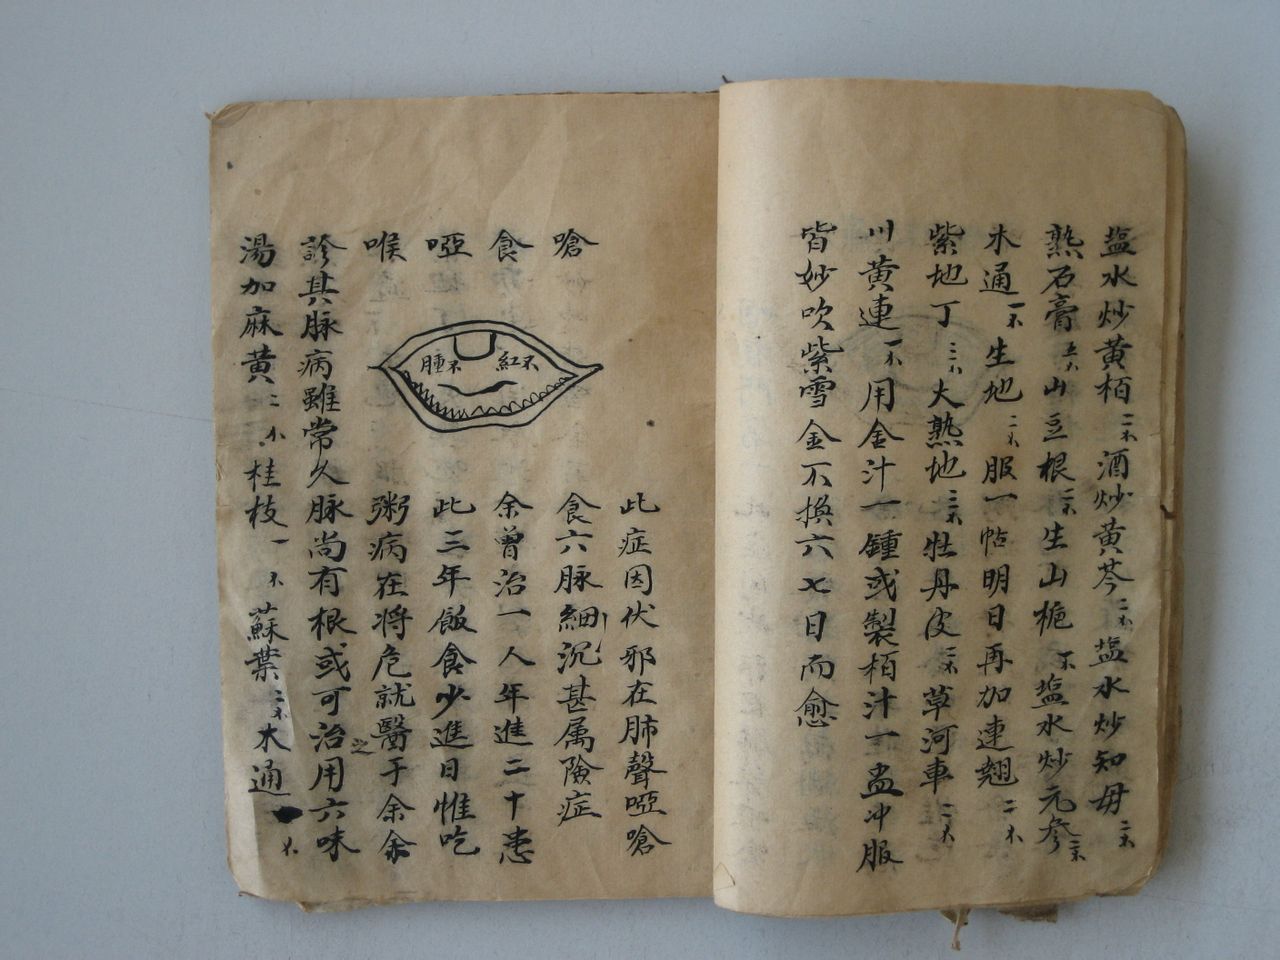 塩水炒黄栢二不酒炒黄芩二不塩水炒知母二不
熟石膏五不山豆根二不生山栀一不塩水炒元参二不
木通一不生地二不服一帖明日再加連翹二不
紫地丁三不大熟地三不牡丹皮二不草河車二不
川黄連一不用金汁一鍾或製栢汁一盅冲服
皆妙吹紫雪金不换六七日而愈
嗆食啞喉
腫不 紅不
此症因伏邪在肺聲啞嗆
食六脉細沉甚属険症
余曾治一人年進二十患
此三年飯食少進日惟吃
粥病在将危就醫于余余
診其脉病雖常久脉尚有根或可治之用六味
湯加麻黄二不桂枝一不蘇葉二不木通一不